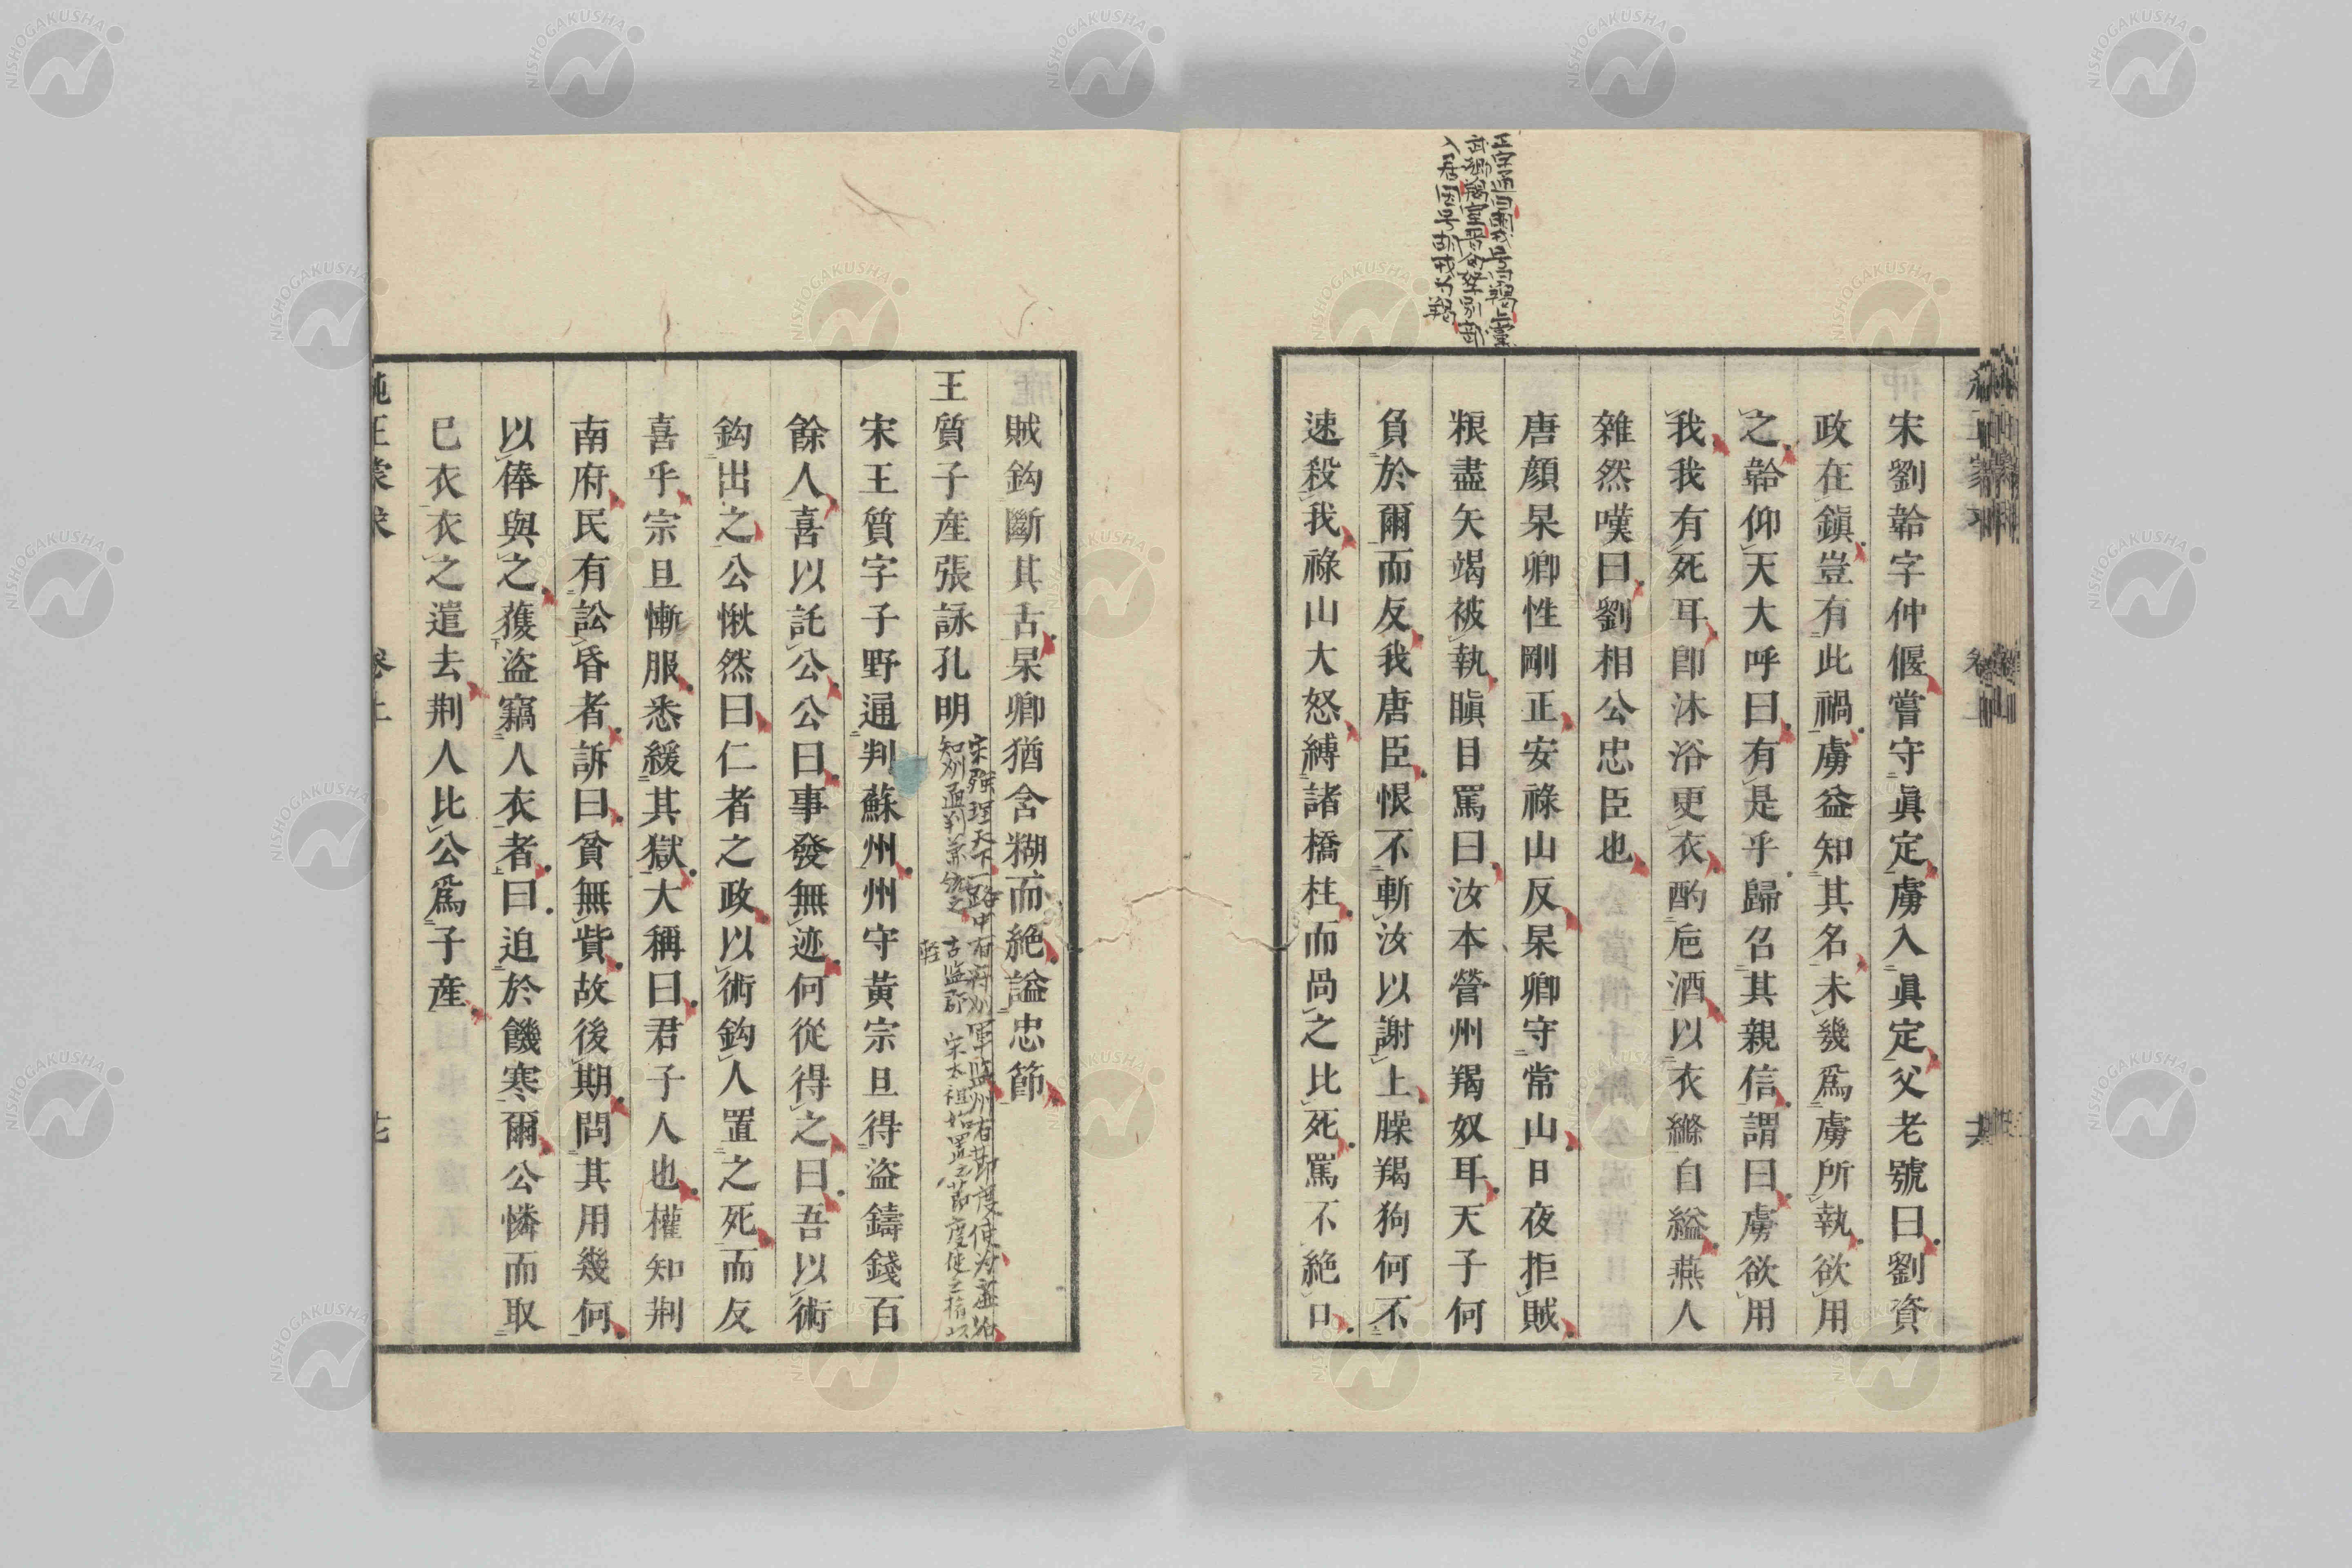 宋劉韐字仲偃嘗守眞定虜入眞定父老號曰劉資
政在鎭豈有此禍虜益知其名未幾爲虜所執欲用
之韐仰天大呼曰有是乎歸召其親信謂曰虜欲用
我我有死耳卽沐浴更衣酌巵酒以衣縧自縊燕人
雜然嘆曰劉相公忠臣也
唐顔杲卿性剛正安祿山反杲卿守常山日夜拒賊
粮盡矢竭被執瞋目罵曰汝本營州羯奴耳天子何
負於爾而反我唐臣恨不斬汝以謝上臊羯狗何不
速殺我祿山大怒縛諸橋柱而咼之比死罵不絕口
賊鈎斷其舌杲卿猶含糊而絕謚忠節
王質子產張詠孔明
宋王質字子野通判蘇州州守黃宗旦得盜鑄錢百
餘人喜以託公公曰事發無迹何從得之曰吾以術
鈎出之公愀然曰仁者之政以術鈎人置之死而反
喜乎宗旦慚服悉緩其獄大稱曰君子人也權知荆
南府民有訟昏者訴曰貧無貲故後期問其用幾何
以俸與之獲盜竊人衣者曰迫於饑寒爾公憐而取
巳衣衣之遣去荆人比公爲子產
純正蒙求 卷上
NISHOGAKUSHA